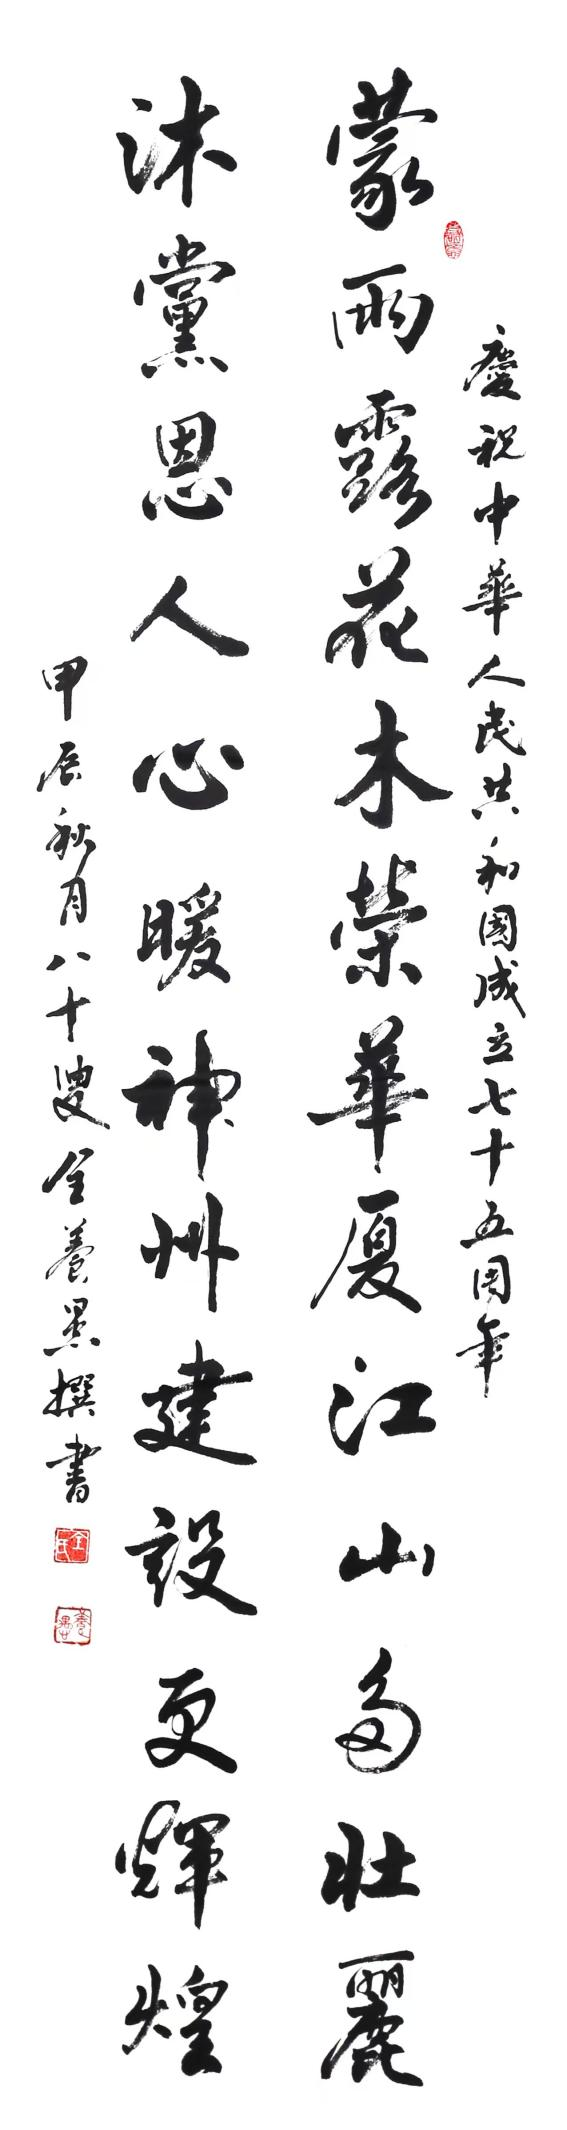 慶祝中華人民共和國成立七十五周年
蒙雨露花木榮華夏江山多壯麗
沐黨恩人心暖神州建設更輝煌
甲辰秋月八十叟全養墨撰書
全氏